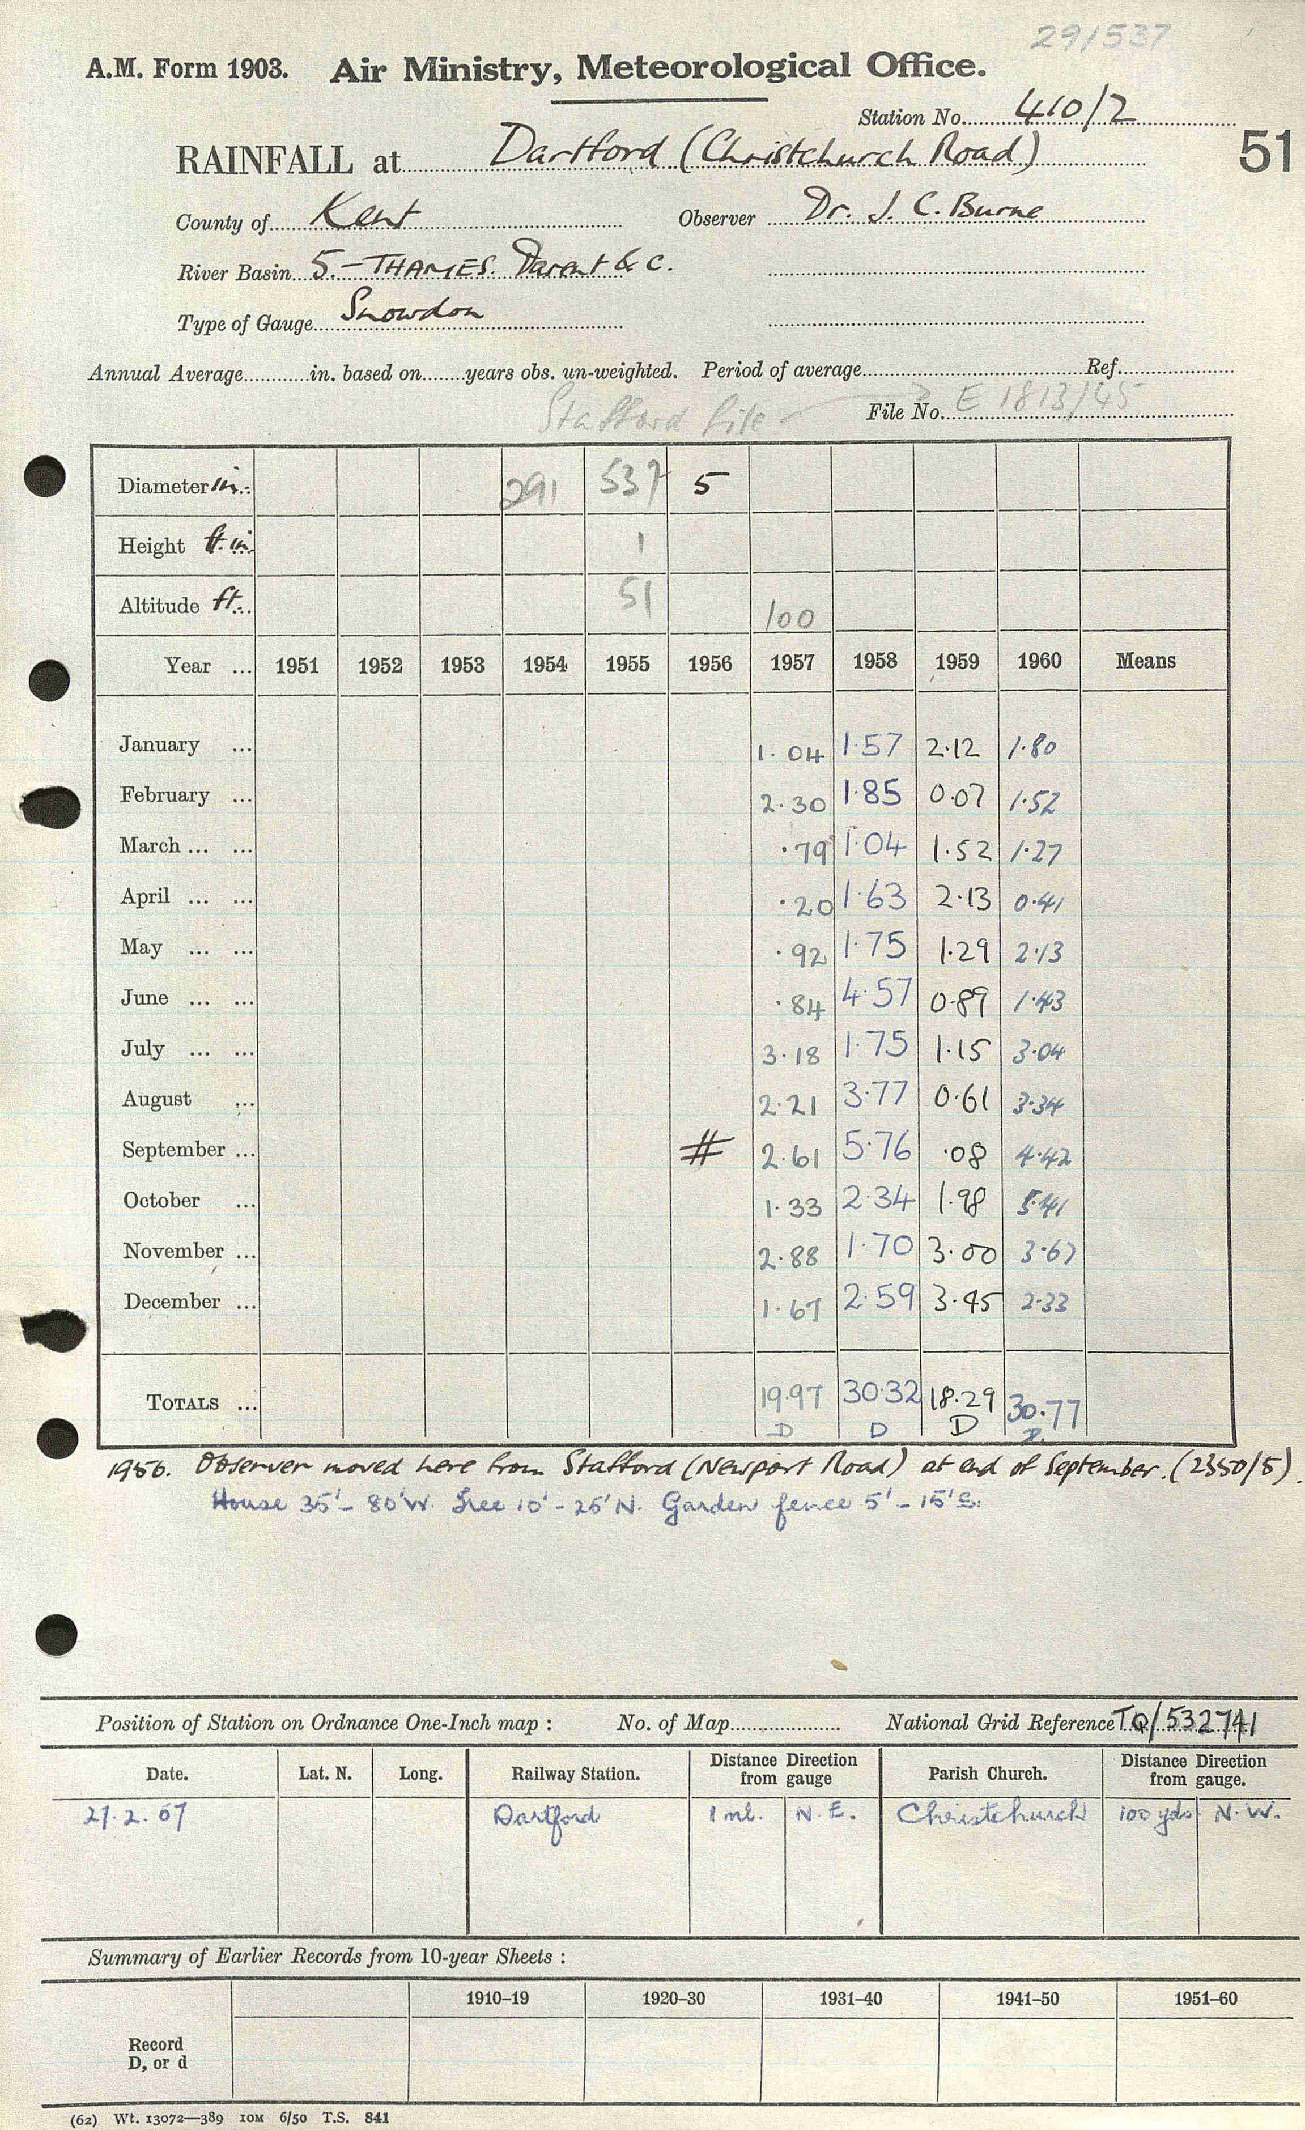 291537
A.M. Form 1903. Air Ministry, Meteorological Office.
Station No. 410/2
51
RAINFALL at Dartford (Christchurch Road)
County of Kent Observer Dr. J. C. Burne
River Basin 5.-THAMES. Darent &c.
Type of Gauge Snowdon
Annual Average in. based on years obs. un-weighted. Period of average Ref.
Stafford file File No. E 1813/45
Diameter in. 291 537 5
Height ft. in. 1
Altitude ft. 51 100
Year ... 1951 1952 1953 1954 1955 1956 1957 1958 1959 1960 Means
January ... 1.04 1.57 2.12 1.80
February ... 2.30 1.85 0.07 1.52
March ... ... .79 1.04 1.52 1.27
April ... ... .20 1.63 2.13 0.41
May ... ... .92 1.75 1.29 2.13
June ... ... .84 4.57 0.89 1.43
July ... ... 3.18 1.75 1.15 3.04
August ... 2.21 3.77 0.61 3.34
September ... # 2.61 5.76 .08 4.42
October ... 1.33 2.34 1.98 5.41
November ... 2.88 1.70 3.00 3.67
December ... 1.67 2.59 3.45 2.33
TOTALS ... 19.97 30.32 18.29 30.77
D D D D
1956. Observer moved here from Stafford (Newport Road) at end of September. (2350/5).
House 35'- 80'W. Tree 10'- 25'N. Garden fence 5'- 15'S.
Position of Station on Ordnance One-Inch map : No. of Map National Grid Reference TQ/532741
Date. Lat. N. Long. Railway Station. Distance Direction from gauge Parish Church. Distance Direction from gauge.
27.2.57 Dartford 1 ml. N.E. Christchurch 100 yds N.W.
Summary of Earlier Records from 10-year Sheets :
1910–19 1920–30 1931–40 1941–50 1951–60
Record
D, or d
(62) Wt. 13072—389 10M 6/50 T.S. 841